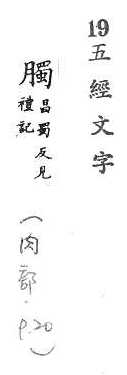 19五經文字
臅昌蜀反見禮記
(肉部.P.20)